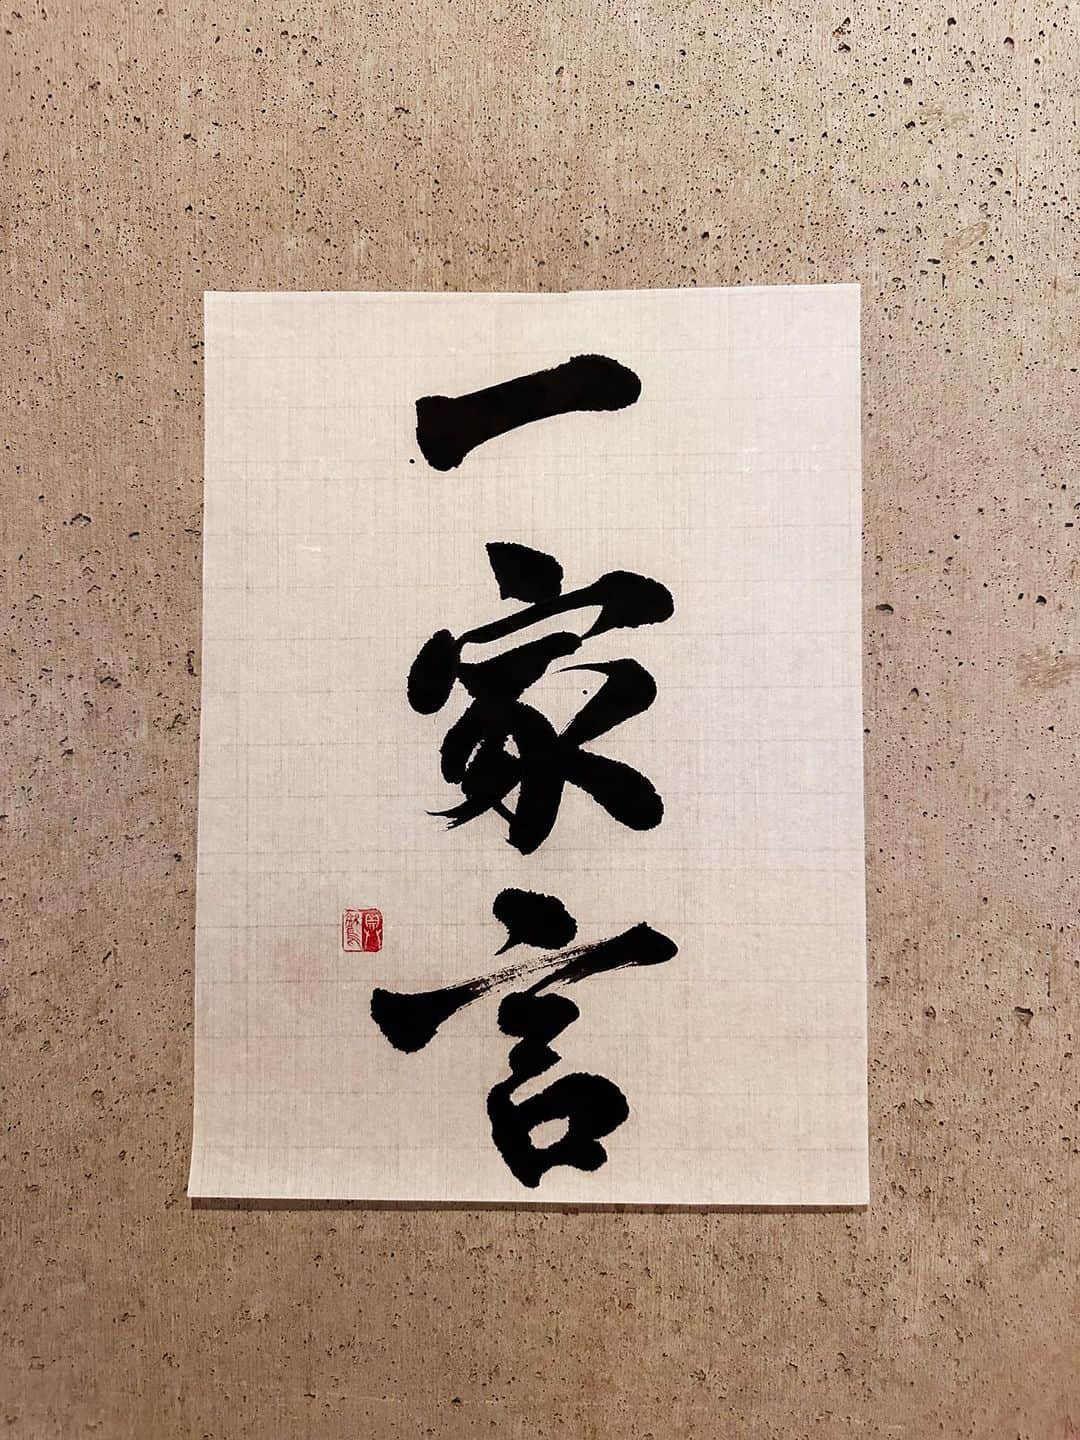 一家言